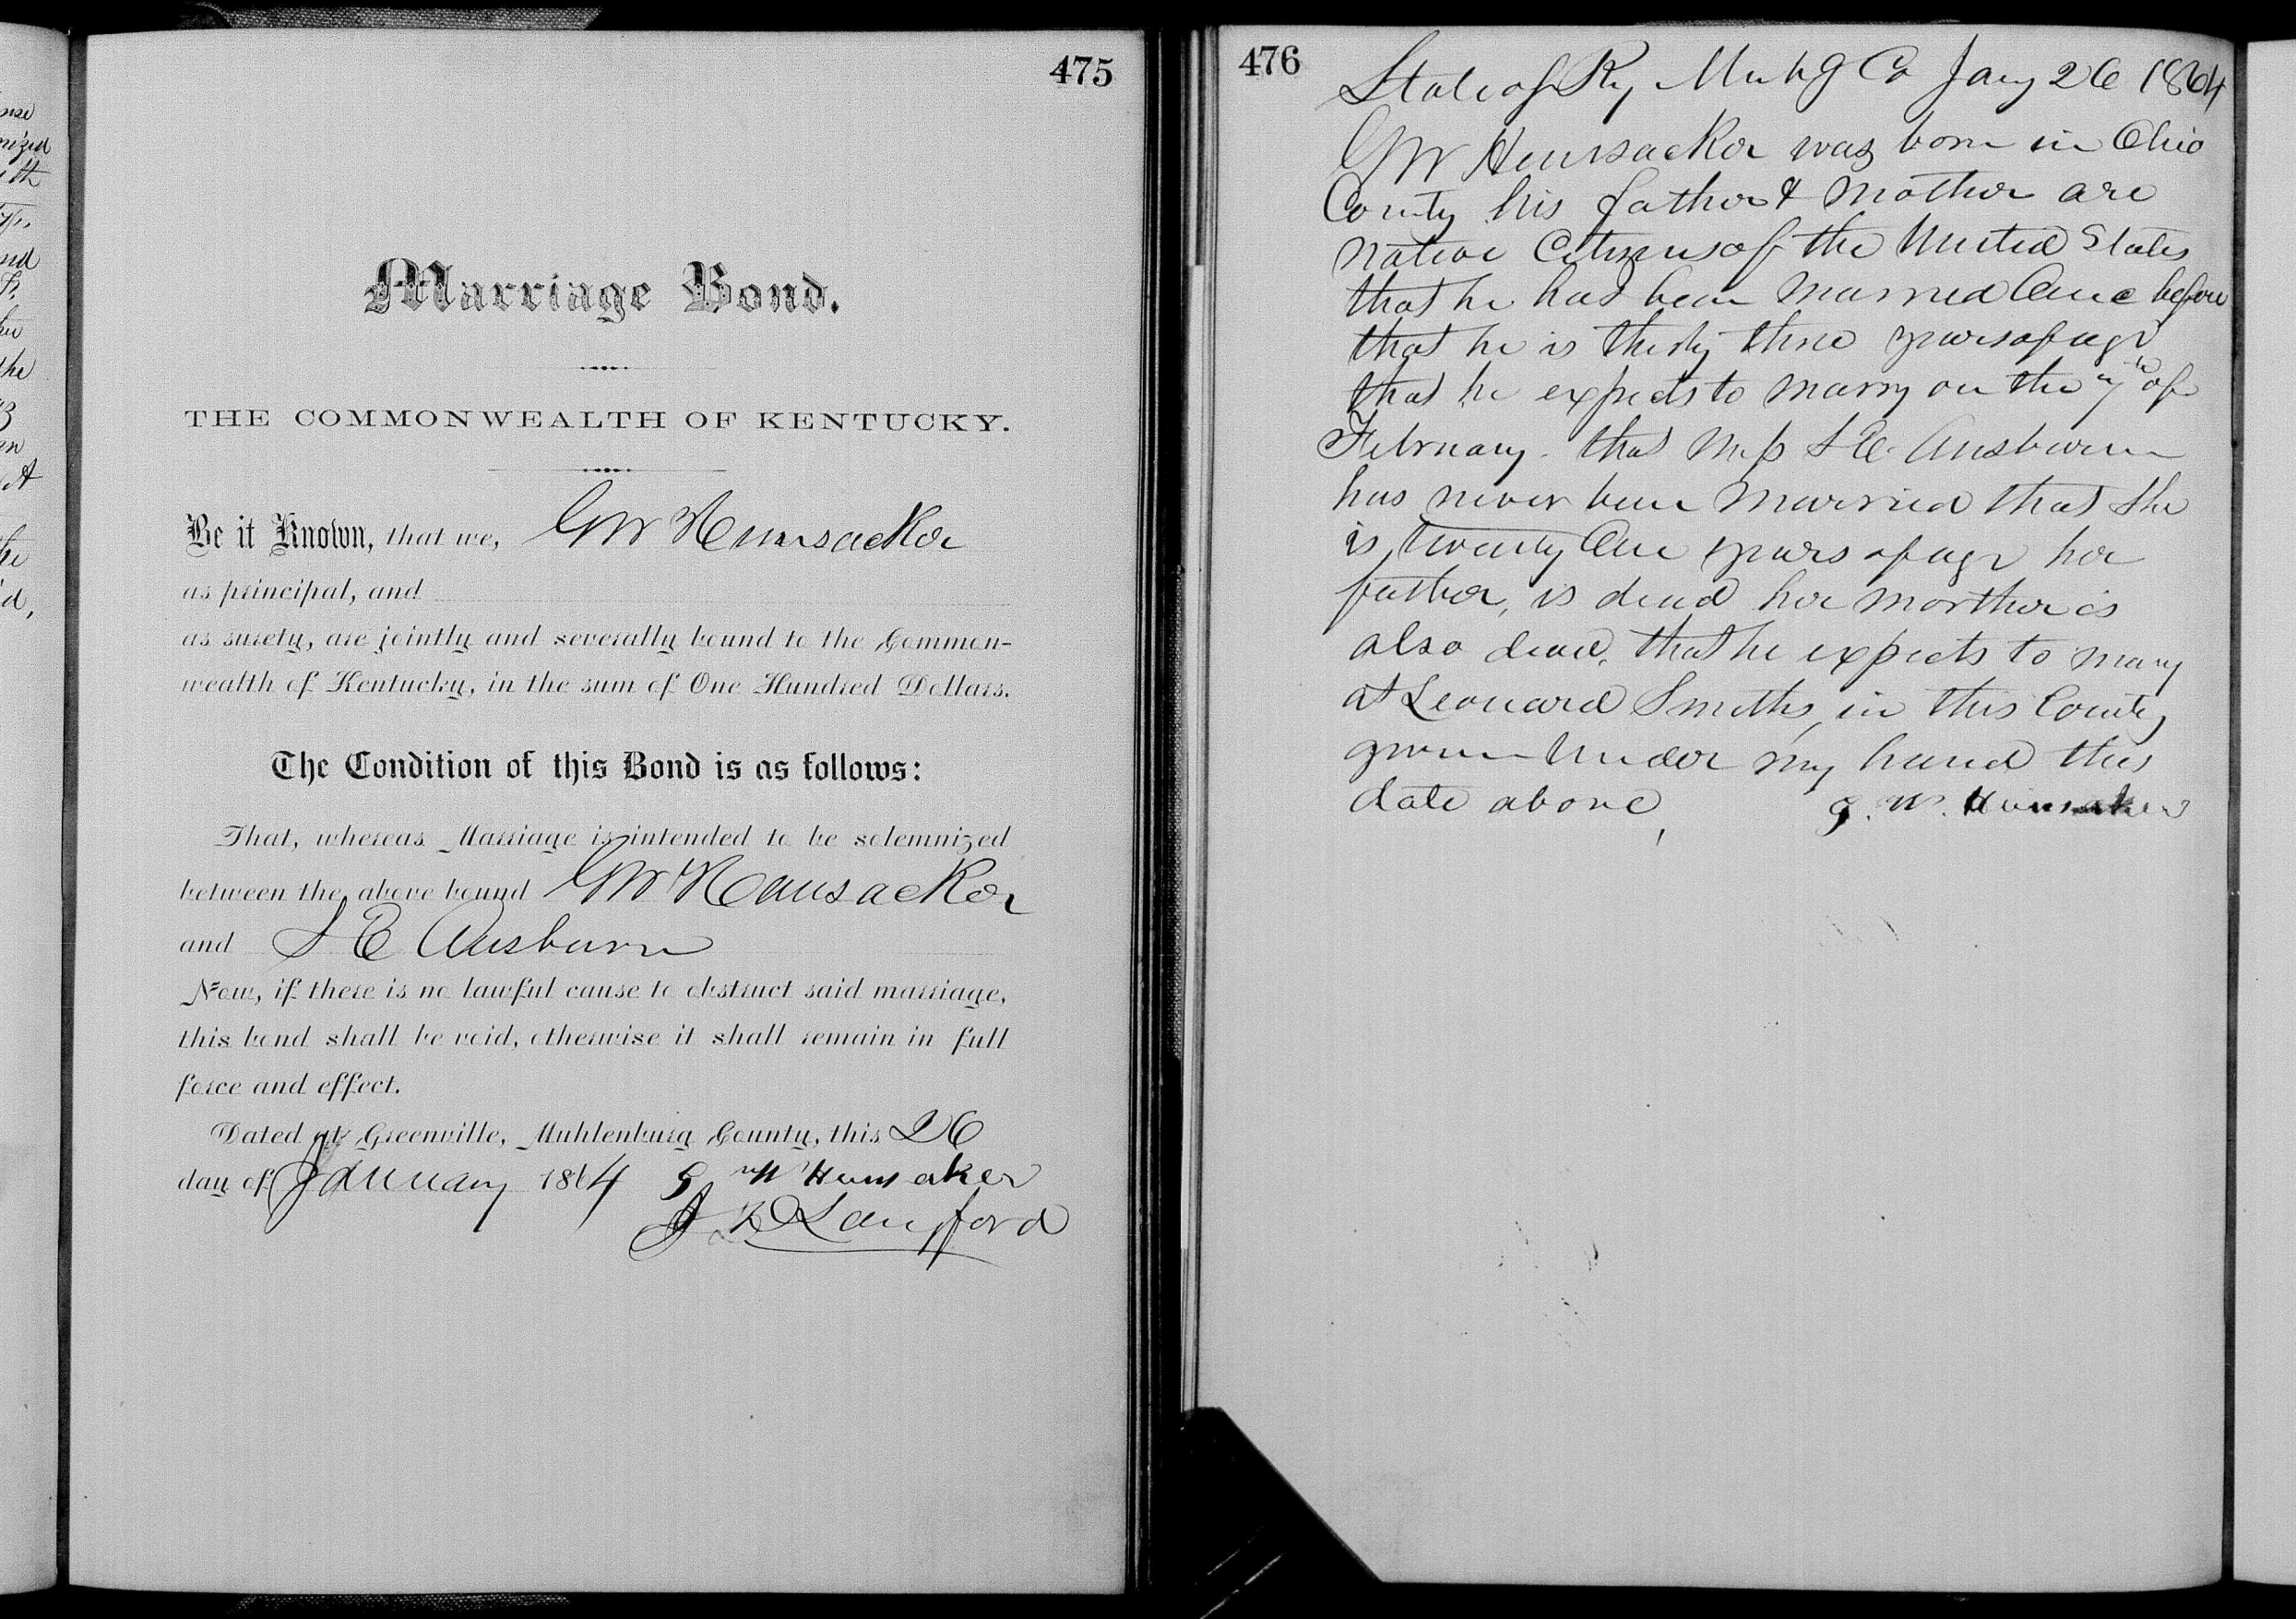 475
Marriage Bond.
THE COMMONWEALTH OF KENTUCKY.
Be it Known, that we, GW Hunsacker
as principal, and
as surety, are jointly and severally bound to the Common-
wealth of Kentucky, in the sum of One Hundred Dollars.
The Condition of this Bond is as follows:
That, whereas Marriage is intended to be solemnized
between the above bound GW Hunsacker
and S E Ausburn
Now, if there is no lawful cause to obstruct said marriage,
this bond shall be void, otherwise it shall remain in full
force and effect.
Dated at Greenville, Muhlenburg County, this 26
day of January 1864 G W Hunsaker
Langford
476
State of Ky Muhg Co Jany 26 1864
GW Hunsacker was born in Ohio
County his father & mother are
native Citizens of the United States
that he has been married Once before
that he is thirty three years of age
that he expects to marry on the of
February that Miss S E Ausburn
has never been married that she
is twenty One years of age her
father, is dead her morther is
also dead, that he expects to mary
at Leonard Smiths, in this County
given under my hand this
date above, G. W. Hunsaker